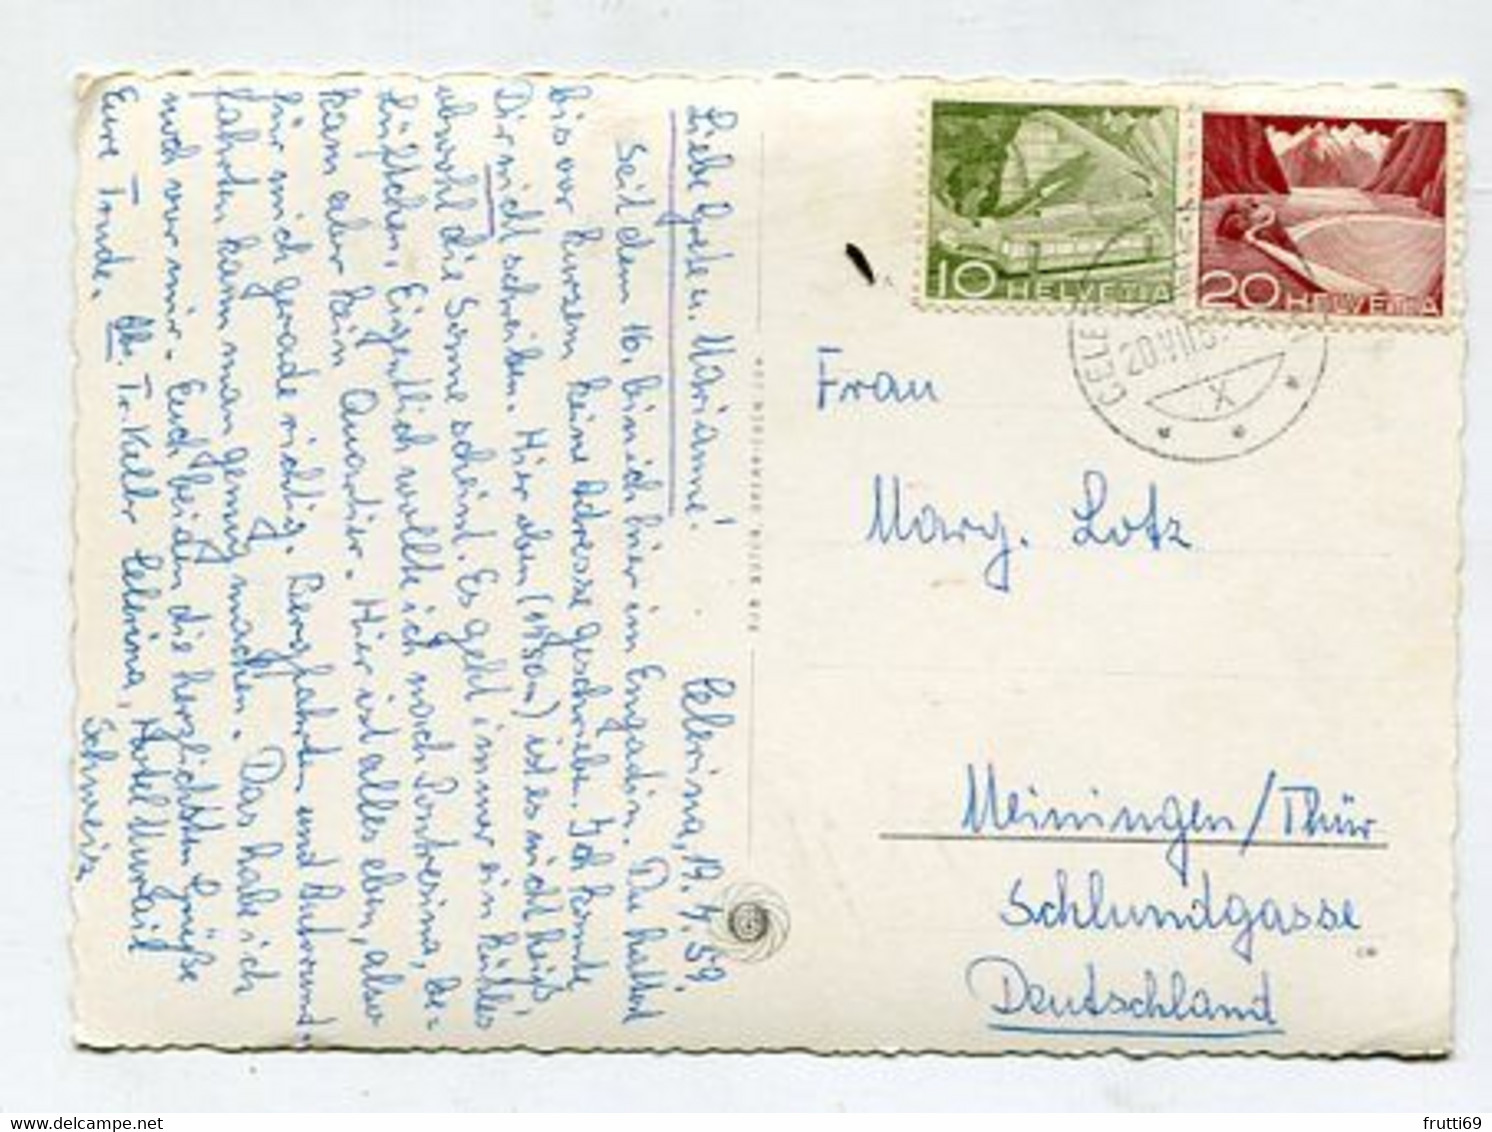 Celerina, 19.7.59.
Liebe Grete u. Marianne!
Seit dem 16. bin ich hier im Engadin. Du hattest
bis vor kurzem keine Adresse geschrieben. Ich konnte
Dir nicht schreiben. Hier oben (1730 m) ist es nicht heiß,
obwohl die Sonne scheint. Es geht immer ein kühles
Lüftchen. Eigentlich wollte ich nach Pontresina, be=
kam aber kein Quartier. Hier ist alles eben, also
für mich gerade richtig. Bergfahrten und Autorund=
fahrten kann man genug machen. Das habe ich
noch vor mir. Euch beiden die herzlichsten Grüße
Eure Trude.
Abs. Tr. Keller Celerina, Hotel Murail
Schweiz
10 HELVETIA
20 HELVETIA
20.VII.5
X
Frau
Marg. Lotz
Meiningen/Thür
Schlundgasse
Deutschland
frutti69